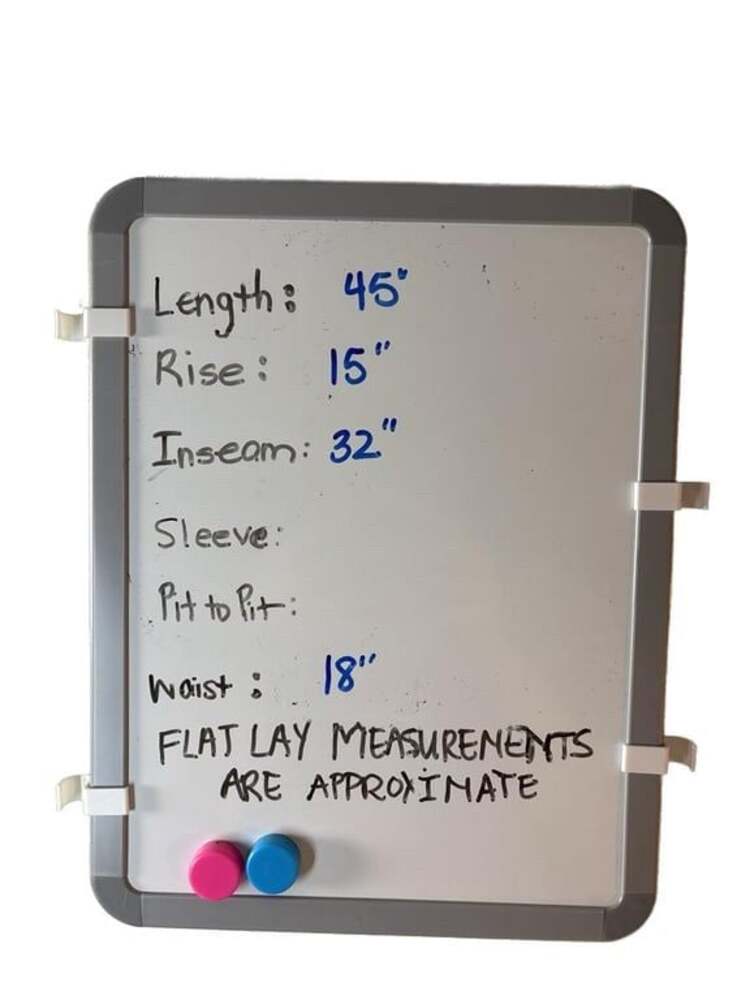 Length: 45"
Rise: 15"
Inseam: 32"
Sleeve:
Pit to Pit:
Waist: 18"
FLAT LAY MEASUREMENTS
ARE APPROXIMATE